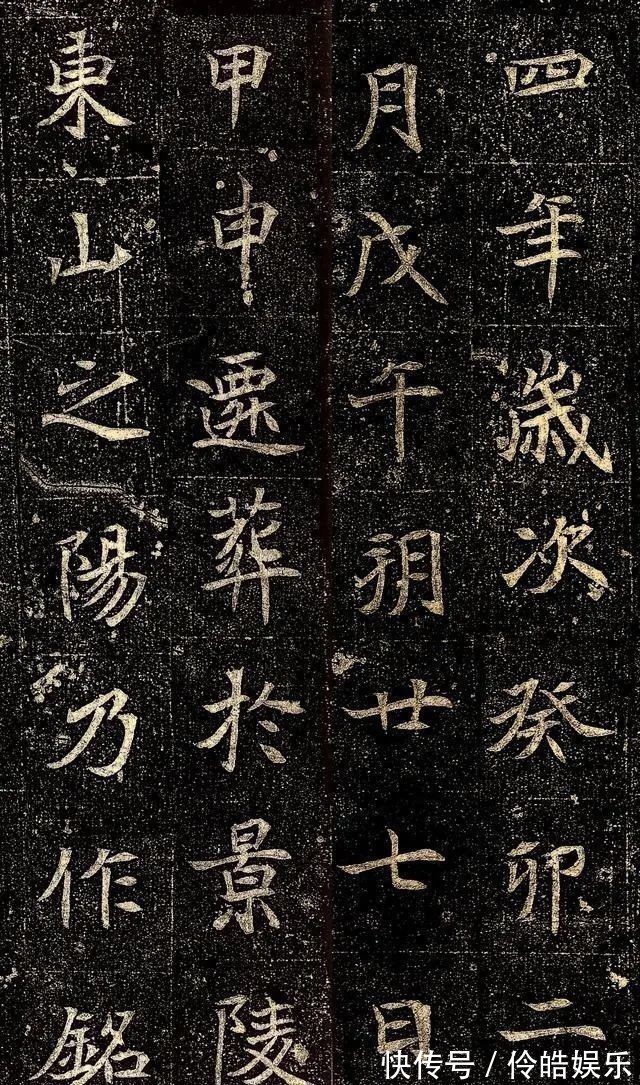 四年歲次癸卯二
月戊午朔廿七日
甲申遷葬於景陵
東山之陽乃作銘
快传号/伶皓娱乐